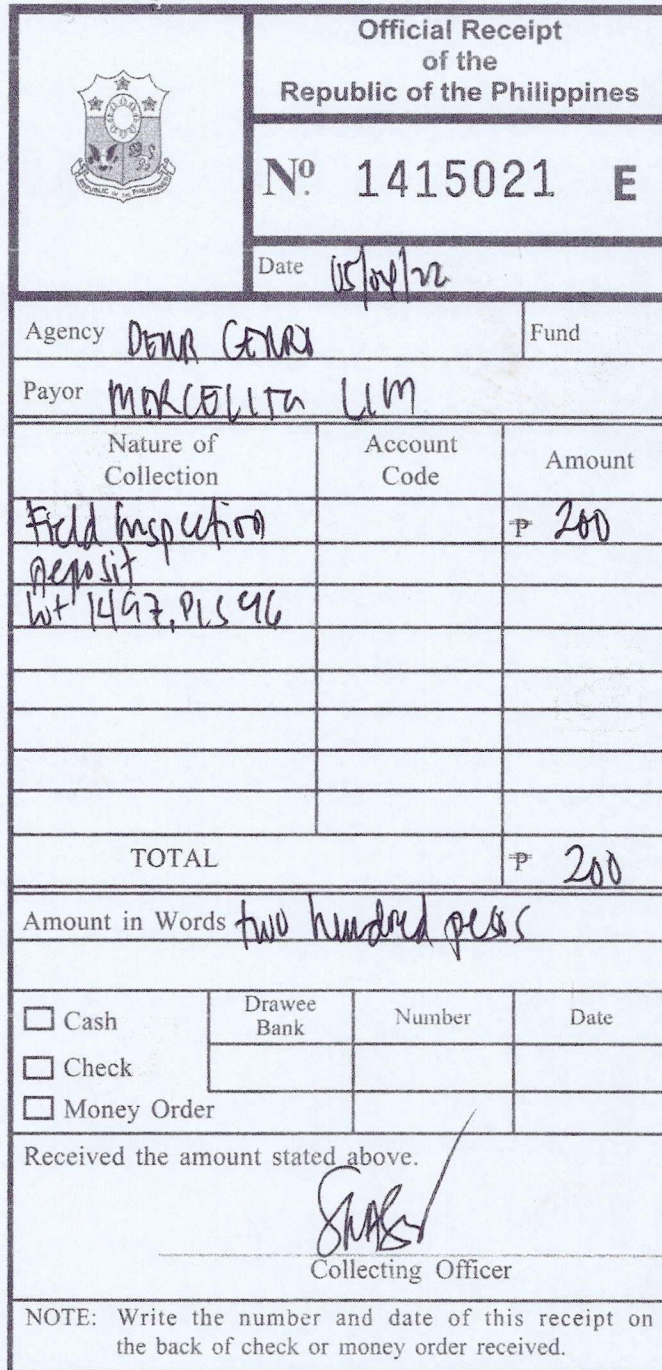 Official Receipt
of the
Republic of the Philippines
REPUBLIC OF THE PHILIPPINES
Nº 1415021 E
Date 05/04/22
Agency DENR CENRO
Fund
Payor MARCELITA LIM
Nature of Collection Account Code Amount
Field Inspection ₱ 200
Deposit
Lot 1497, PLS 96
TOTAL ₱ 200
Amount in Words two hundred pesos
Cash Drawee Bank Number Date
Check
Money Order
Received the amount stated above.
Collecting Officer
NOTE: Write the number and date of this receipt on
the back of check or money order received.